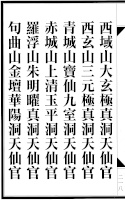 西域山大玄極真洞天仙官
西玄山三元極真洞天仙官
青城山寶仙九室洞天仙官
赤城山上清玉平洞天仙官
羅浮山朱明曜真洞天仙官
句曲山金壇華陽洞天仙官